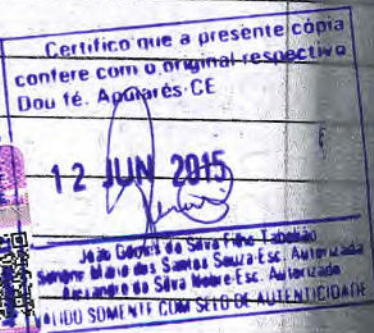 Certifico que a presente cópia
confere com o original respectivo
Dou fé. Apuiarés-CE
12 JUN 2015
João Gomes da Silva Filho-Tabelião
Simone Maria dos Santos Souza-Esc. Autorizada
Alexandre da Silva Nobre-Esc. Autorizado
VALIDO SOMENTE COM SELO DE AUTENTICIDADE